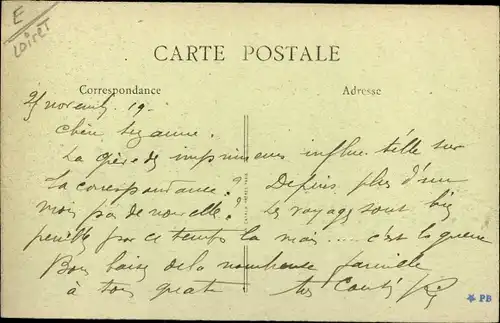 E
Loiret
CARTE POSTALE
Correspondance
Adresse
25 novemb. 19.
Chère Suzanne.
La grève des imprimeurs influe t'elle sur
la correspondance? Depuis plus d'un
mois pas de nouvelle? Les voyages sont bien
pénible par ce temps là mais..... c'est la guerre
Bons baisers de la nombreuse famille
à tous quatre
PB